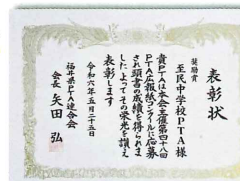 表彰状
奨励賞
至民中学校PTA様
貴PTAは本会主催第四十八回
PTA広報紙コンクールに応募
され頭書の成績を得られま
した よってその栄光を讃え
表彰します
令和六年五月二十五日
福井県PTA連合会
会長 矢田 弘